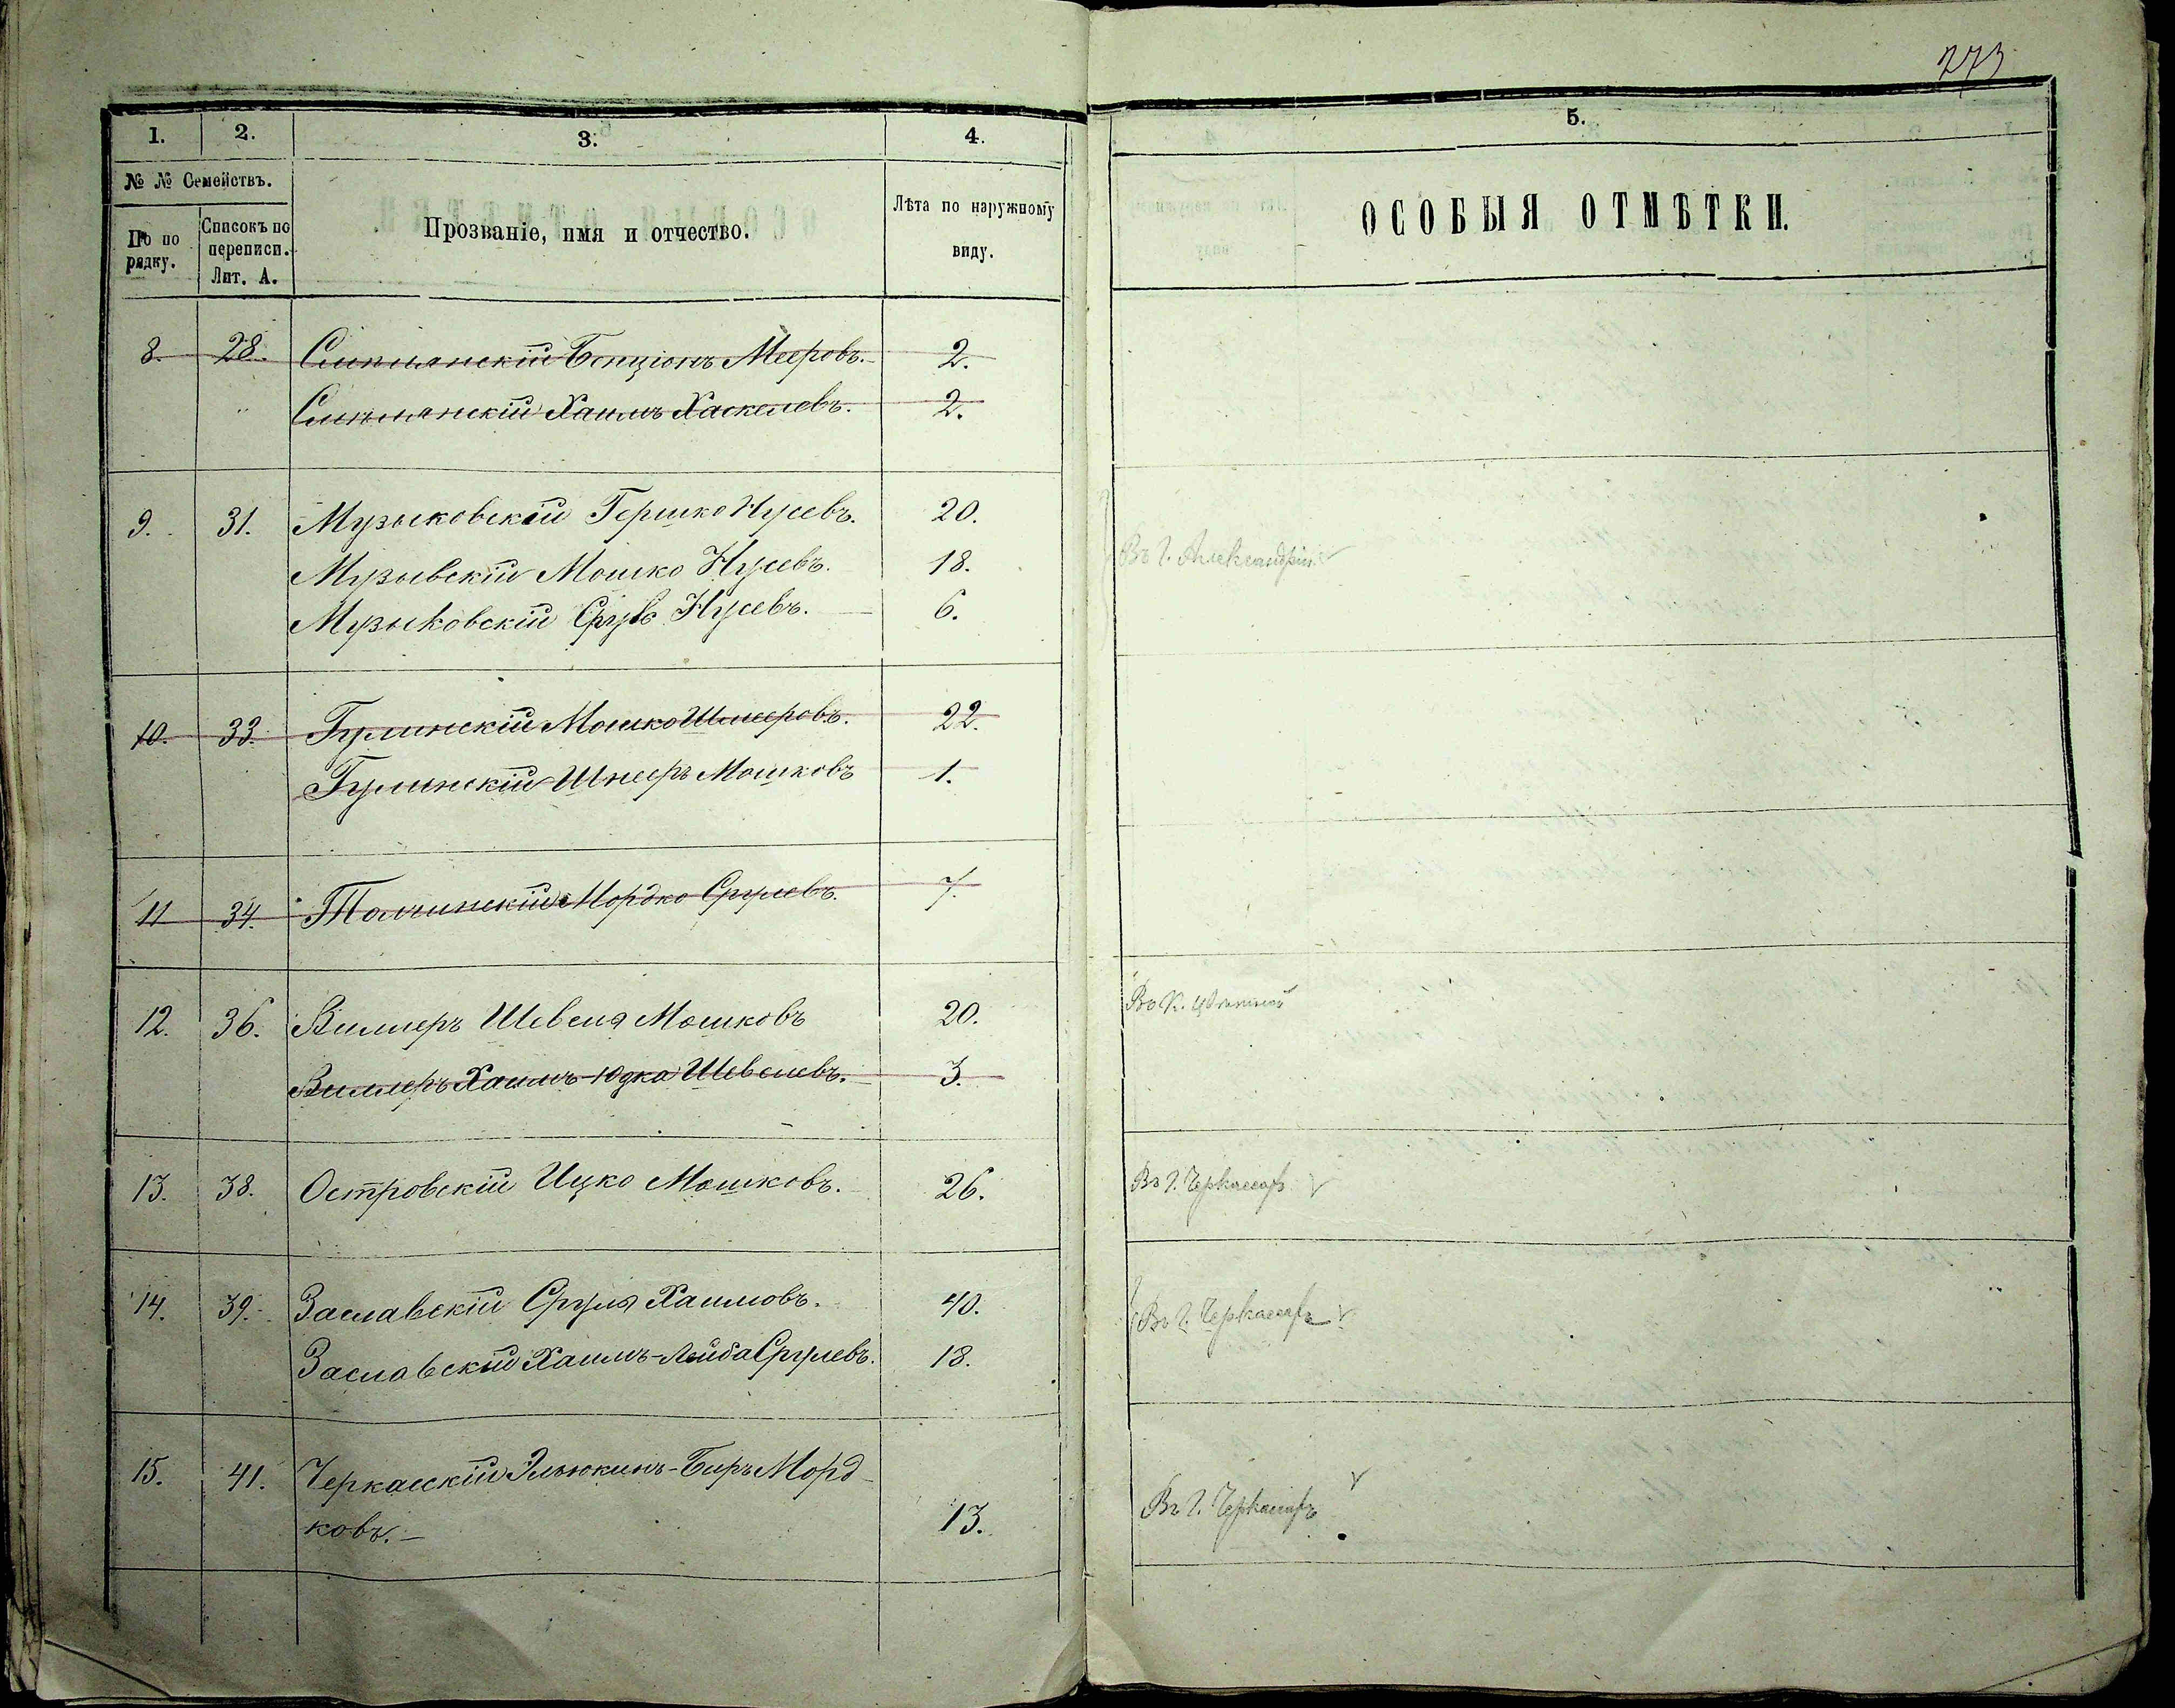 273
1. 2. 3. 4. 5.
№ № Семействъ.
По по рядку.
Списокъ по переписи. Лит. А.
Прозваніе, имя и отчество.
Лѣта по наружному виду.
ОСОБЫЯ ОТМѢТКИ.
8. 28. Бенціонъ Мееровъ. 2.
Хаимъ Хаскелевъ. 2.
9. 31. Музыковскій Гершко Нусевъ. 20.
Музывскій Мошко Нусевъ. 18. Въ г. Александріи
Музыковскій Сруль Нусевъ. 6.
10. 33. Гулинскій Мошко Шнееровъ. 22.
Гулинскій Шнееръ Мошковъ 1.
11 34. Талчинскій Мордко Срулевъ. 7.
12. 36. Виллеръ Шевеля Мошковъ 20. Въ
Виллеръ Хаимъ-Юдка Шевелевъ. 3.
13. 38. Островскій Ицко Мошковъ. 26. Въ г. Черкассахъ
14. 39. Заславскій Сруля Хаимовъ. 40. Въ г. Черкассахъ
Заславскій Хаимъ-Лейба Срулевъ. 18.
15. 41. Черкасскій Эльюкинъ-Биръ Морд-
ковъ. 13. Въ г. Черкассахъ